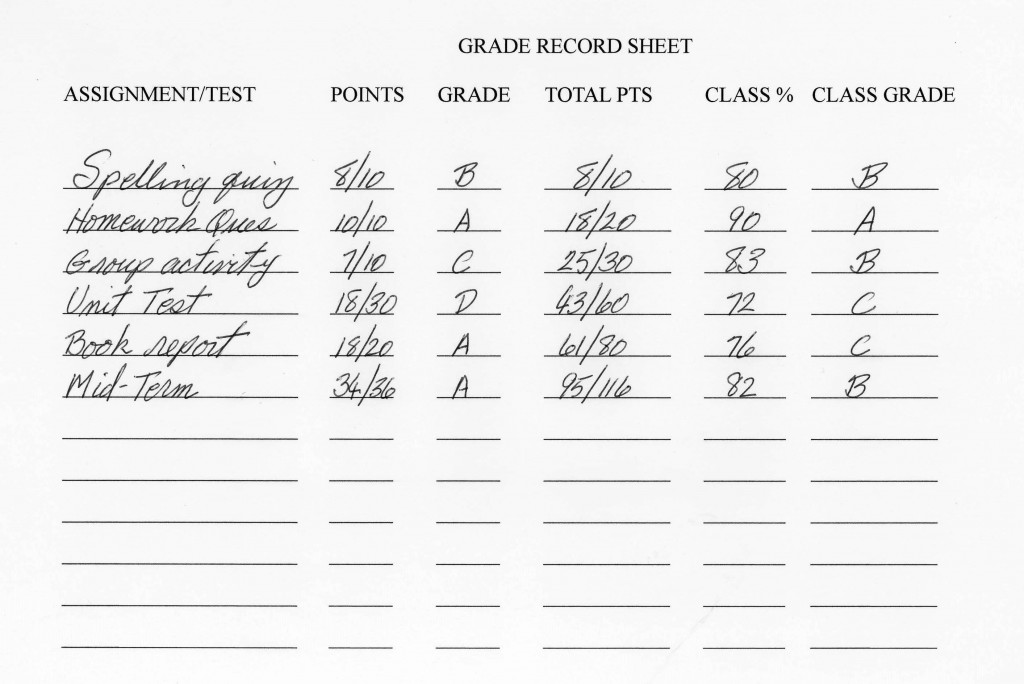 GRADE RECORD SHEET
ASSIGNMENT/TEST POINTS GRADE TOTAL PTS CLASS % CLASS GRADE
Spelling quiz 8/10 B 8/10 80 B
Homework Ques 10/10 A 18/20 90 A
Group activity 7/10 C 25/30 83 B
Unit Test 18/30 D 43/60 72 C
Book report 18/20 A 61/80 76 C
Mid-Term 34/36 A 95/116 82 B